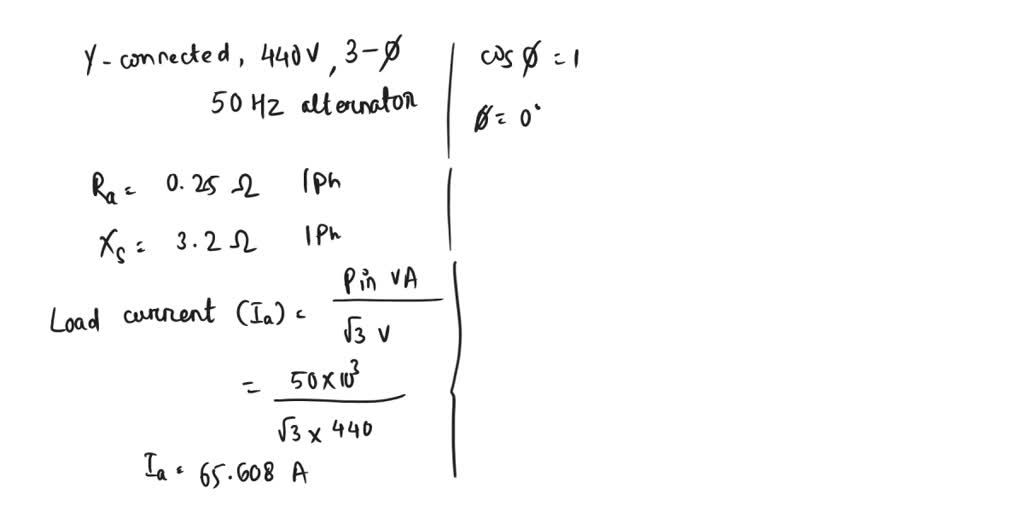 Y-connected, 440V, 3-ϕ
50 Hz alternator
Ra = 0.25 Ω /Ph
Xs = 3.2 Ω /Ph
Load current (Ia) = P in VA / √3 V
= 50×10³ / √3 × 440
Ia = 65.608 A
cos ϕ = 1
ϕ = 0°